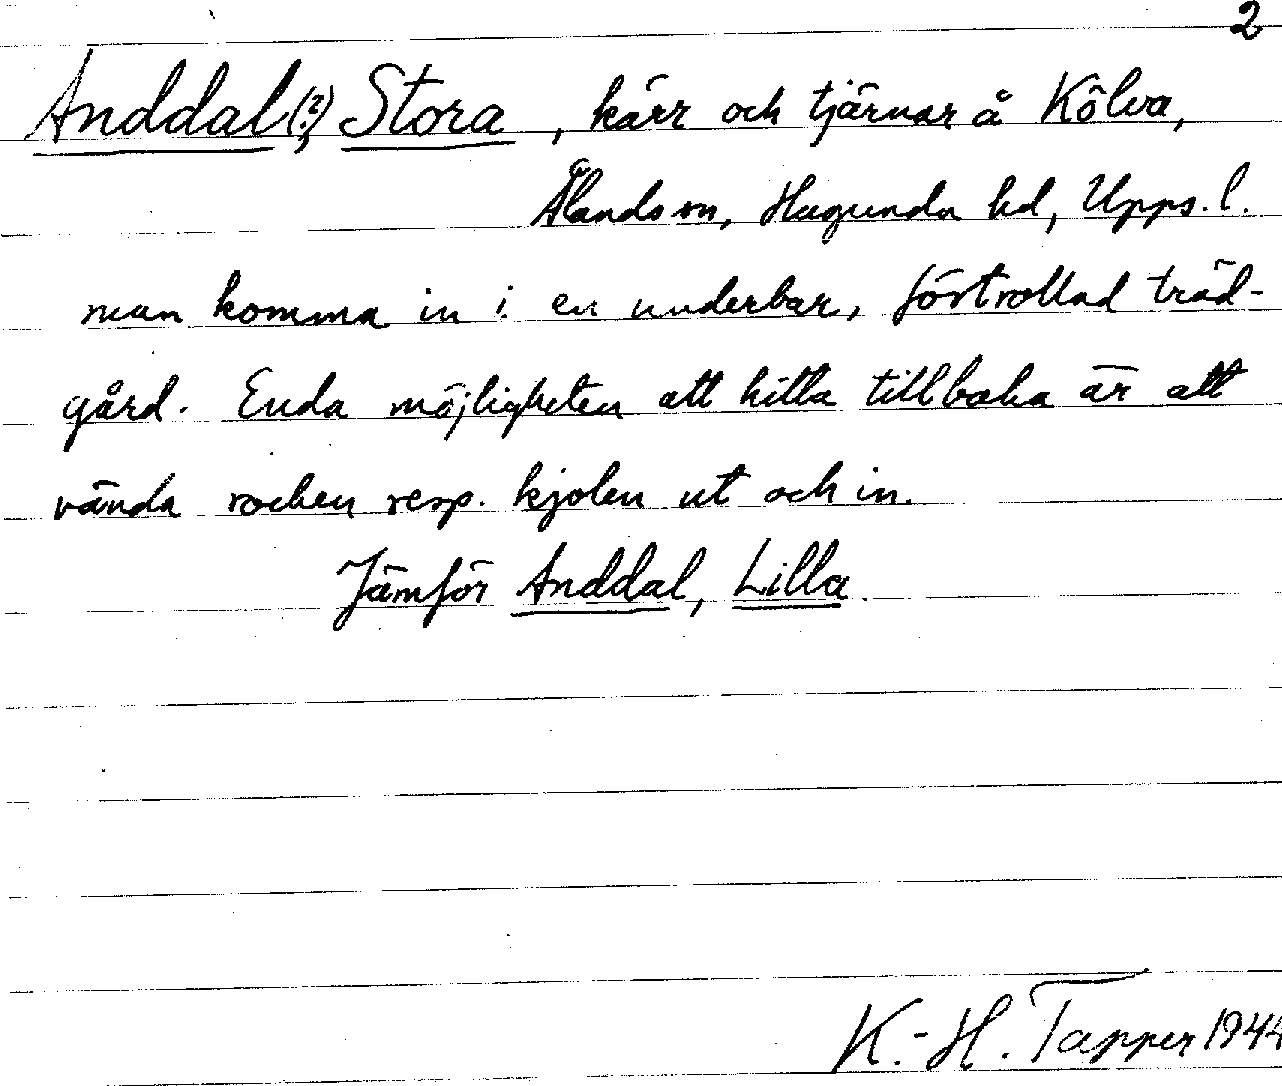 2
Anddal(?), Stora, kärr och tjärnar å Kölva,
Ålands sn, Hagunda hd, Upps. l.
man komma in i en underbar, förtrollad träd-
gård. Enda möjligheten att hitta tillbaka är att
vända rocken resp. kjolen ut och in.
Jämför Anddal, Lilla.
K.-H. Tapper 1944